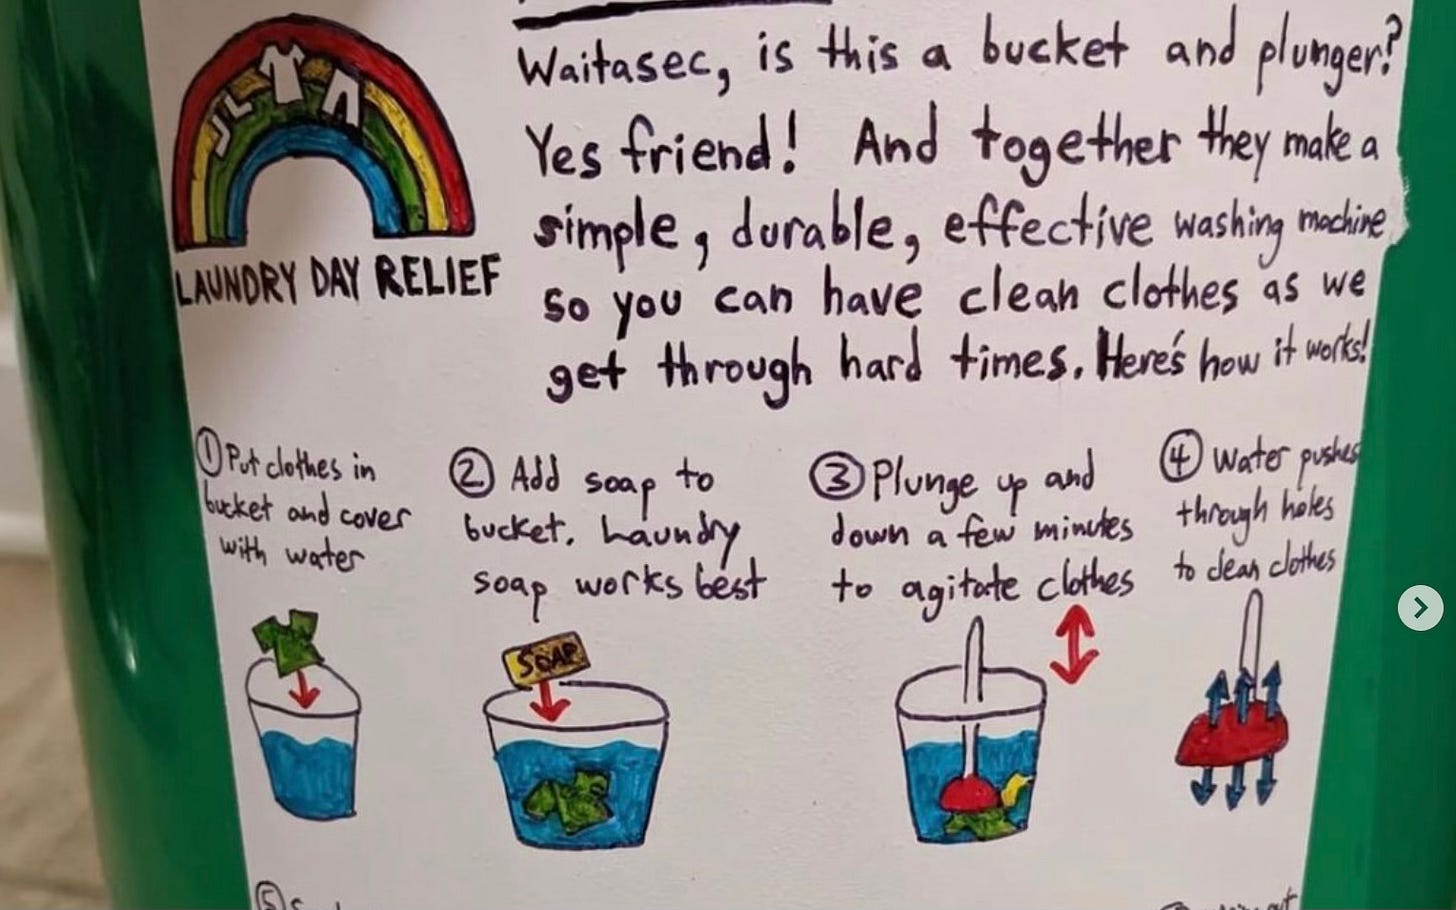 Waitasec, is this a bucket and plunger?
Yes friend! And together they make a
simple, durable, effective washing machine
so you can have clean clothes as we
get through hard times. Here's how it works!
LAUNDRY DAY RELIEF
① Put clothes in
bucket and cover
with water
② Add soap to
bucket. Laundry
soap works best
③ Plunge up and
down a few minutes
to agitate clothes
④ Water pushes
through holes
to clean clothes
SOAP
⑤